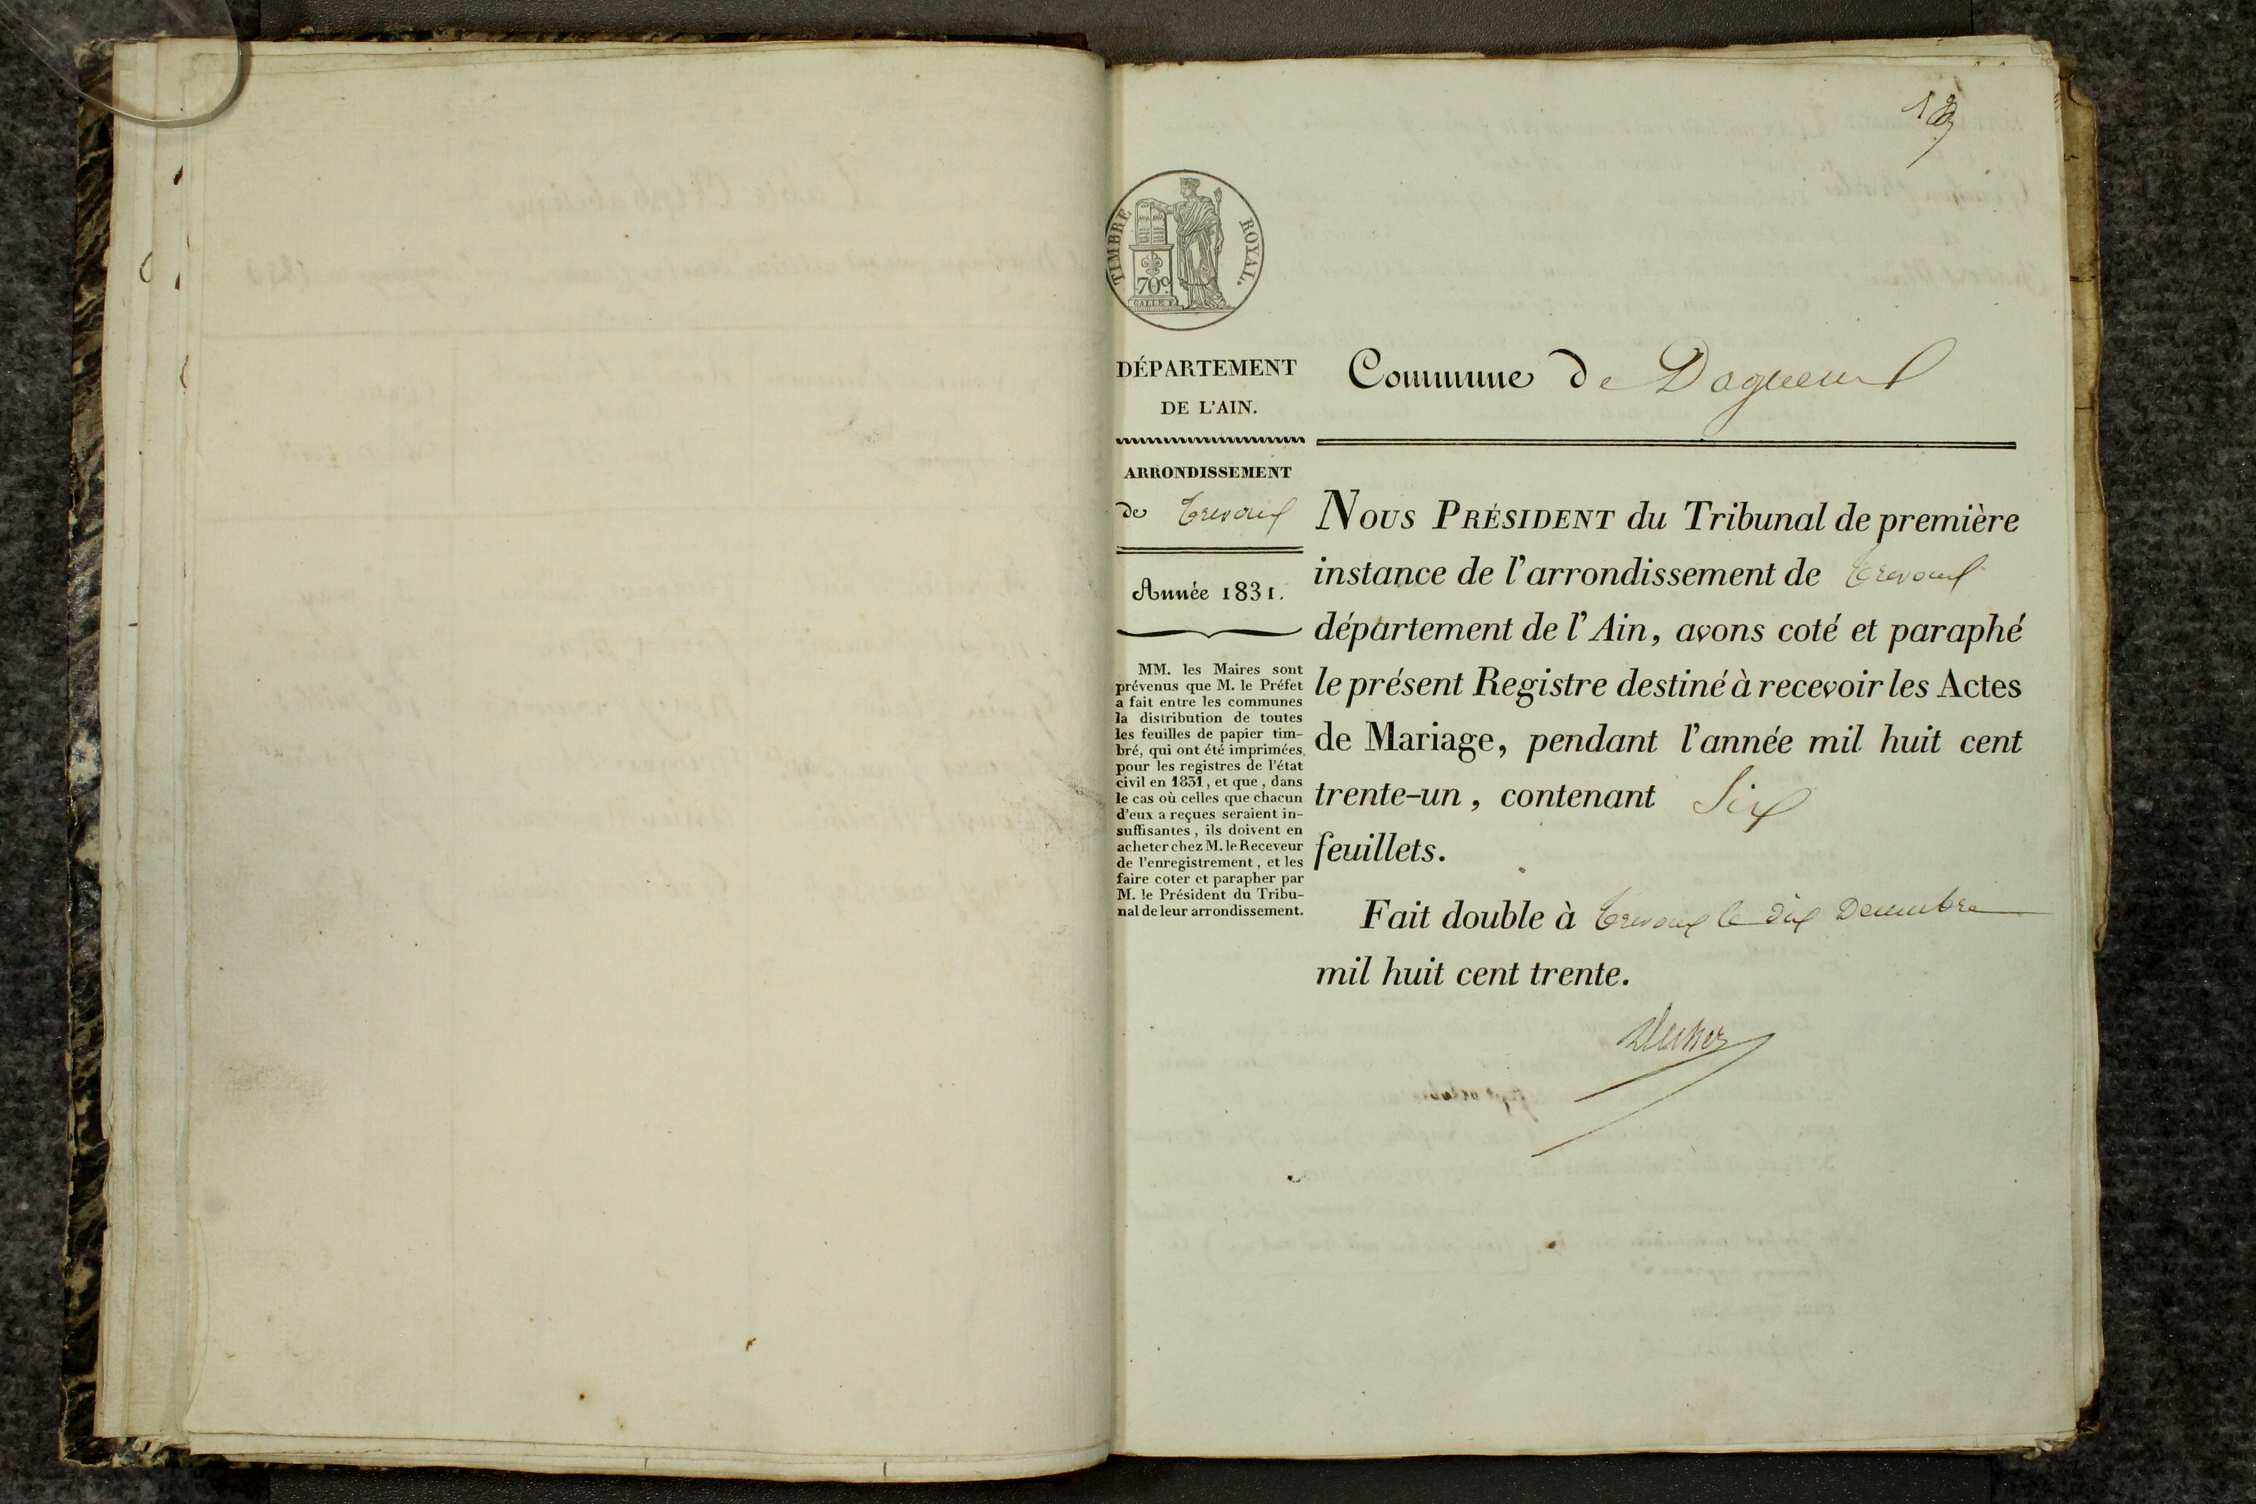 TIMBRE ROYAL.
70c.
DÉPARTEMENT
DE L'AIN.
ARRONDISSEMENT
de Trevoux
Année 1831.
MM. les Maires sont
prévenus que M. le Préfet
a fait entre les communes
la distribution de toutes
les feuilles de papier tim-
bré, qui ont été imprimées
pour les registres de l'état
civil en 1831, et que, dans
le cas où celles que chacun
d'eux a reçues seraient in-
suffisantes, ils doivent en
acheter chez M. le Receveur
de l'enregistrement, et les
faire coter et parapher par
M. le Président du Tribu-
nal de leur arrondissement.
Commune de Dagneux
NOUS PRÉSIDENT du Tribunal de première
instance de l'arrondissement de Trevoux
département de l'Ain, avons coté et paraphé
le présent Registre destiné à recevoir les Actes
de Mariage, pendant l'année mil huit cent
trente-un, contenant Six
feuillets.
Fait double à Trevoux le dix Decembre
mil huit cent trente.